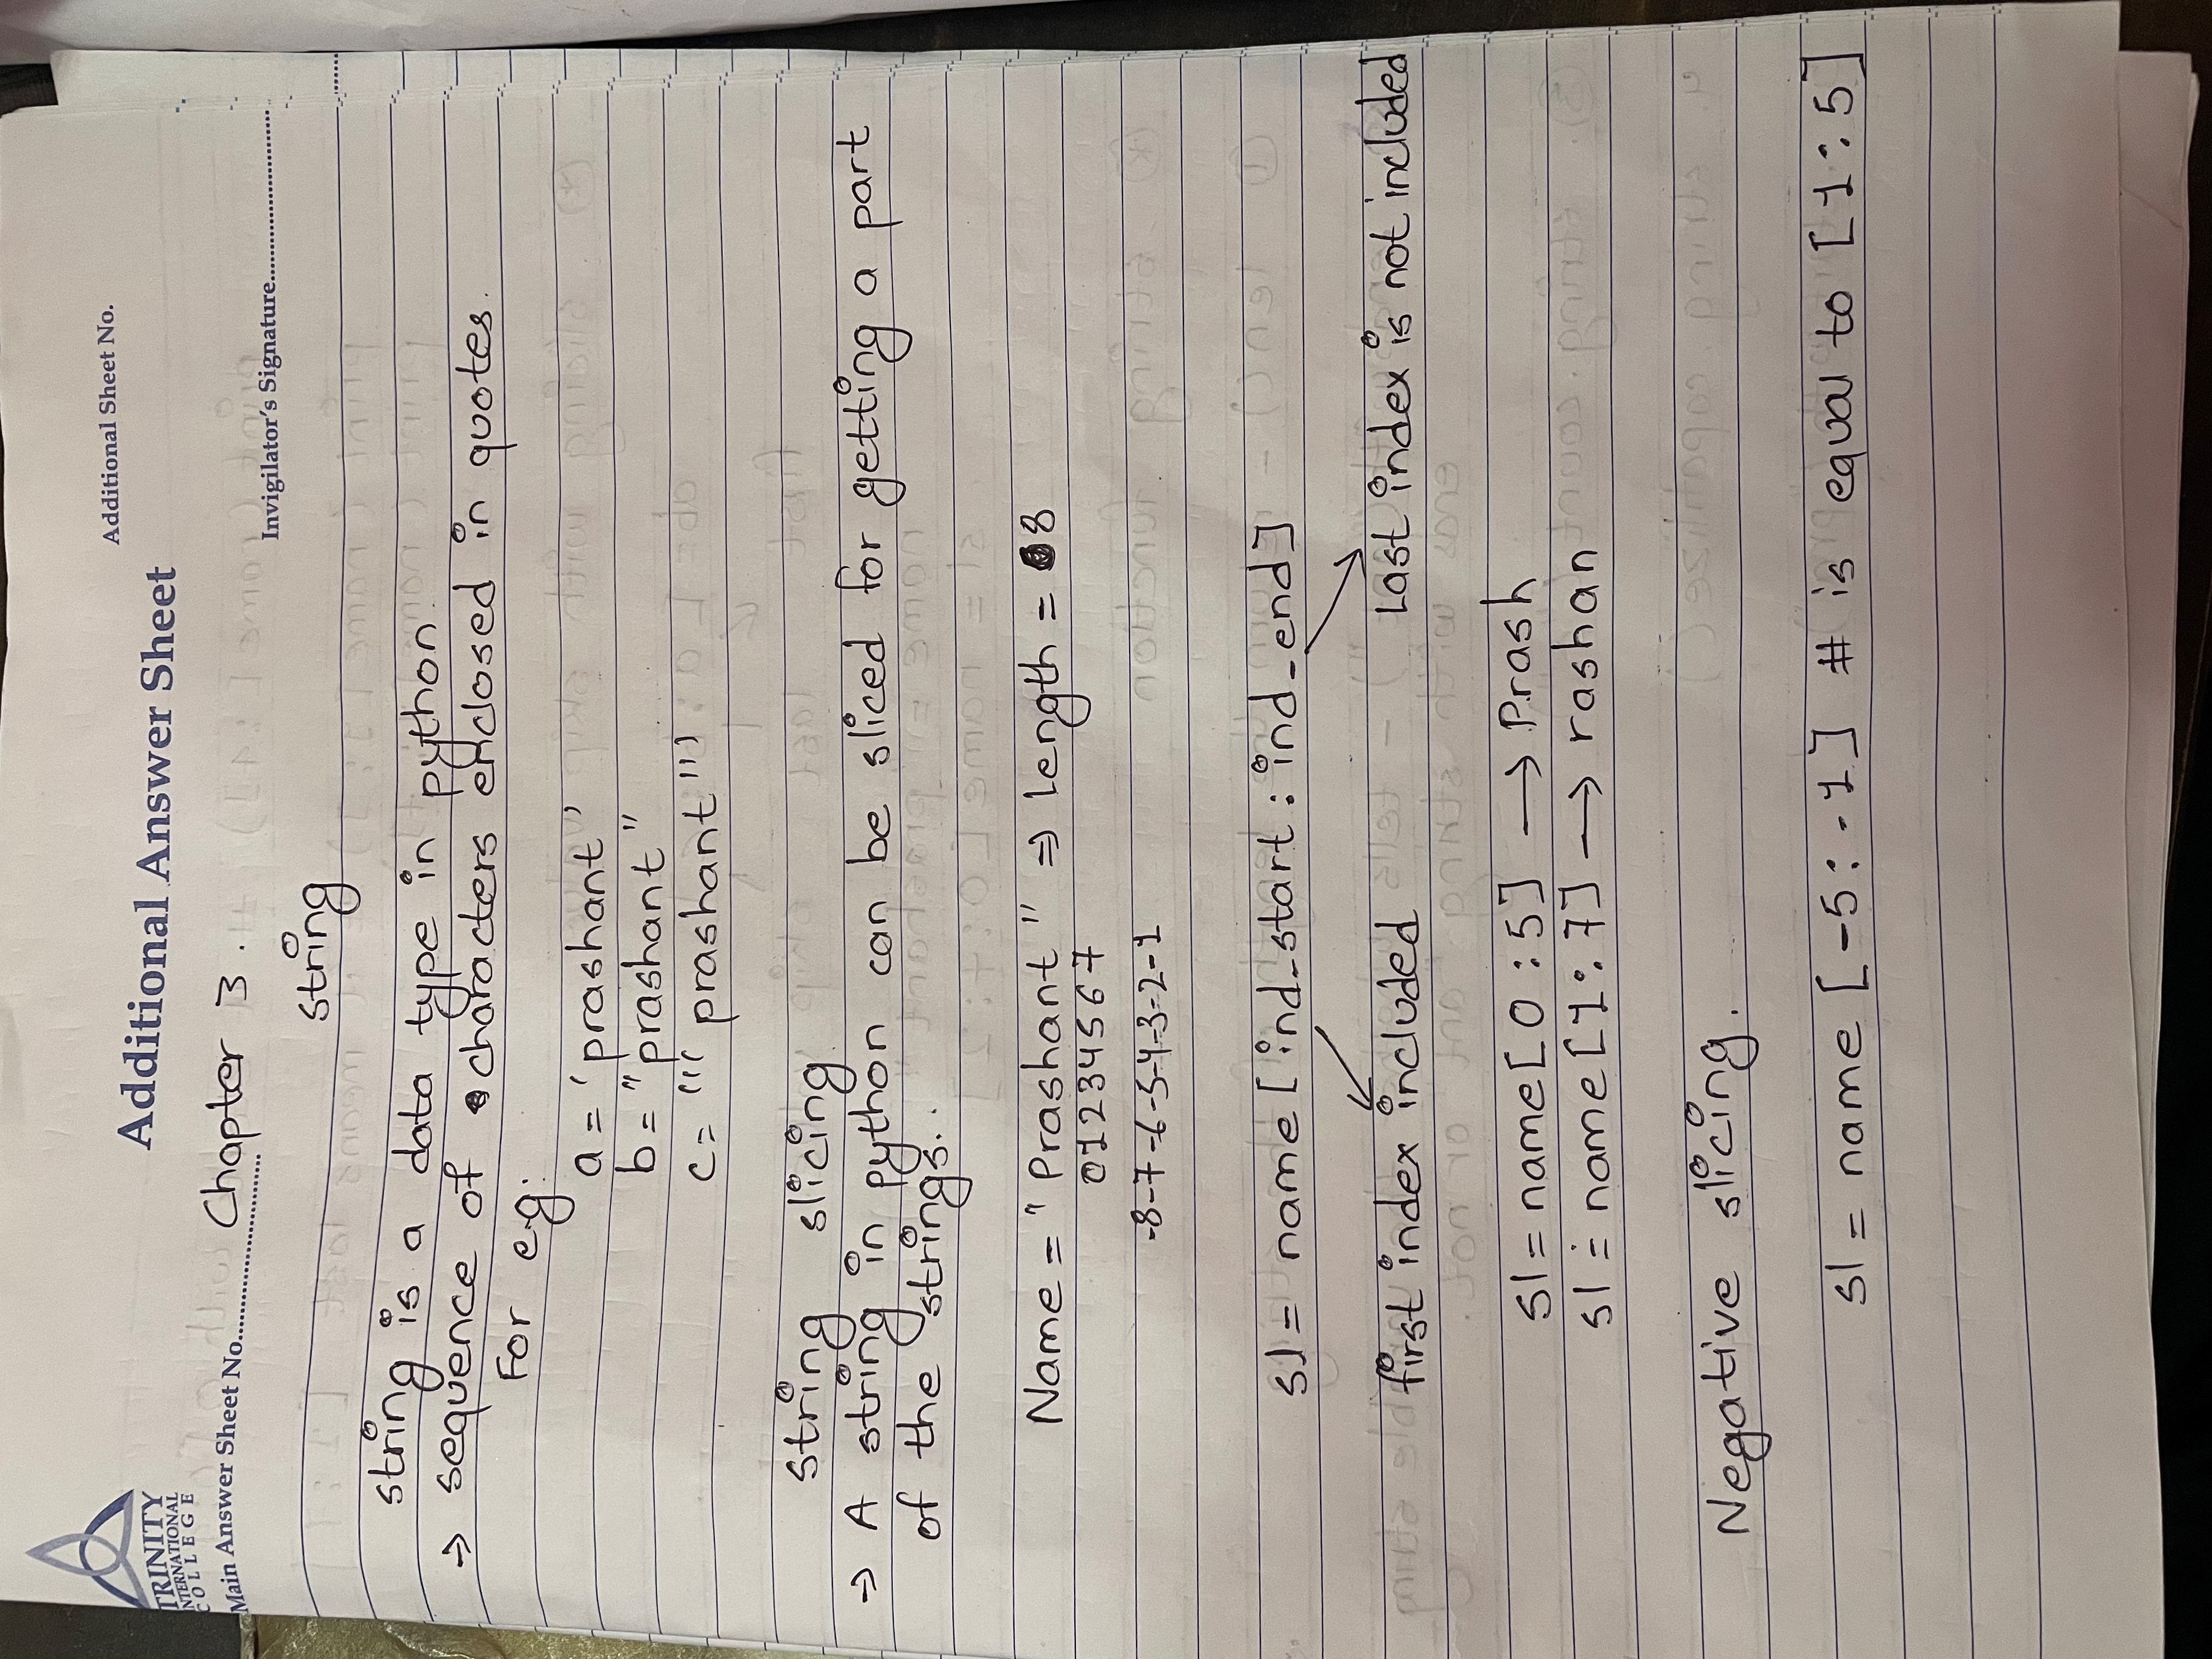 TRINITY
INTERNATIONAL
COLLEGE
Additional Answer Sheet
Additional Sheet No.
Main Answer Sheet No.......................
Invigilator's Signature.......................
Chapter 3.
string
string is a data type in python.
→ sequence of characters enclosed in quotes.
For eg:
a = 'prashant'
b = "prashant"
c = ''' prashant '''
string slicing
→ A string in python can be sliced for getting a part
of the strings.
Name = "Prashant" ⇒ length = 8
01234567
-8-7-6-5-4-3-2-1
sl = name [ind_start : ind_end]
first index included
Last index is not included
sl = name[0:5] → Prash
sl = name[1:7] → rashan
Negative slicing.
sl = name [-5:-1] # is equal to [1:5]